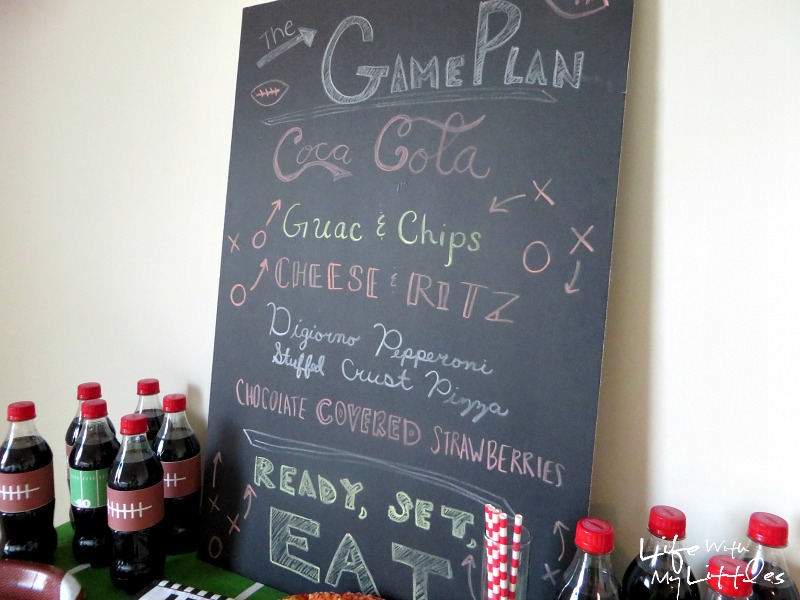 The
GAME PLAN
Coca Cola
Guac & Chips
CHEESE & RITZ
Digiorno Pepperoni
Stuffed Crust Pizza
CHOCOLATE COVERED STRAWBERRIES
READY, SET,
EAT
Life With
My Littles